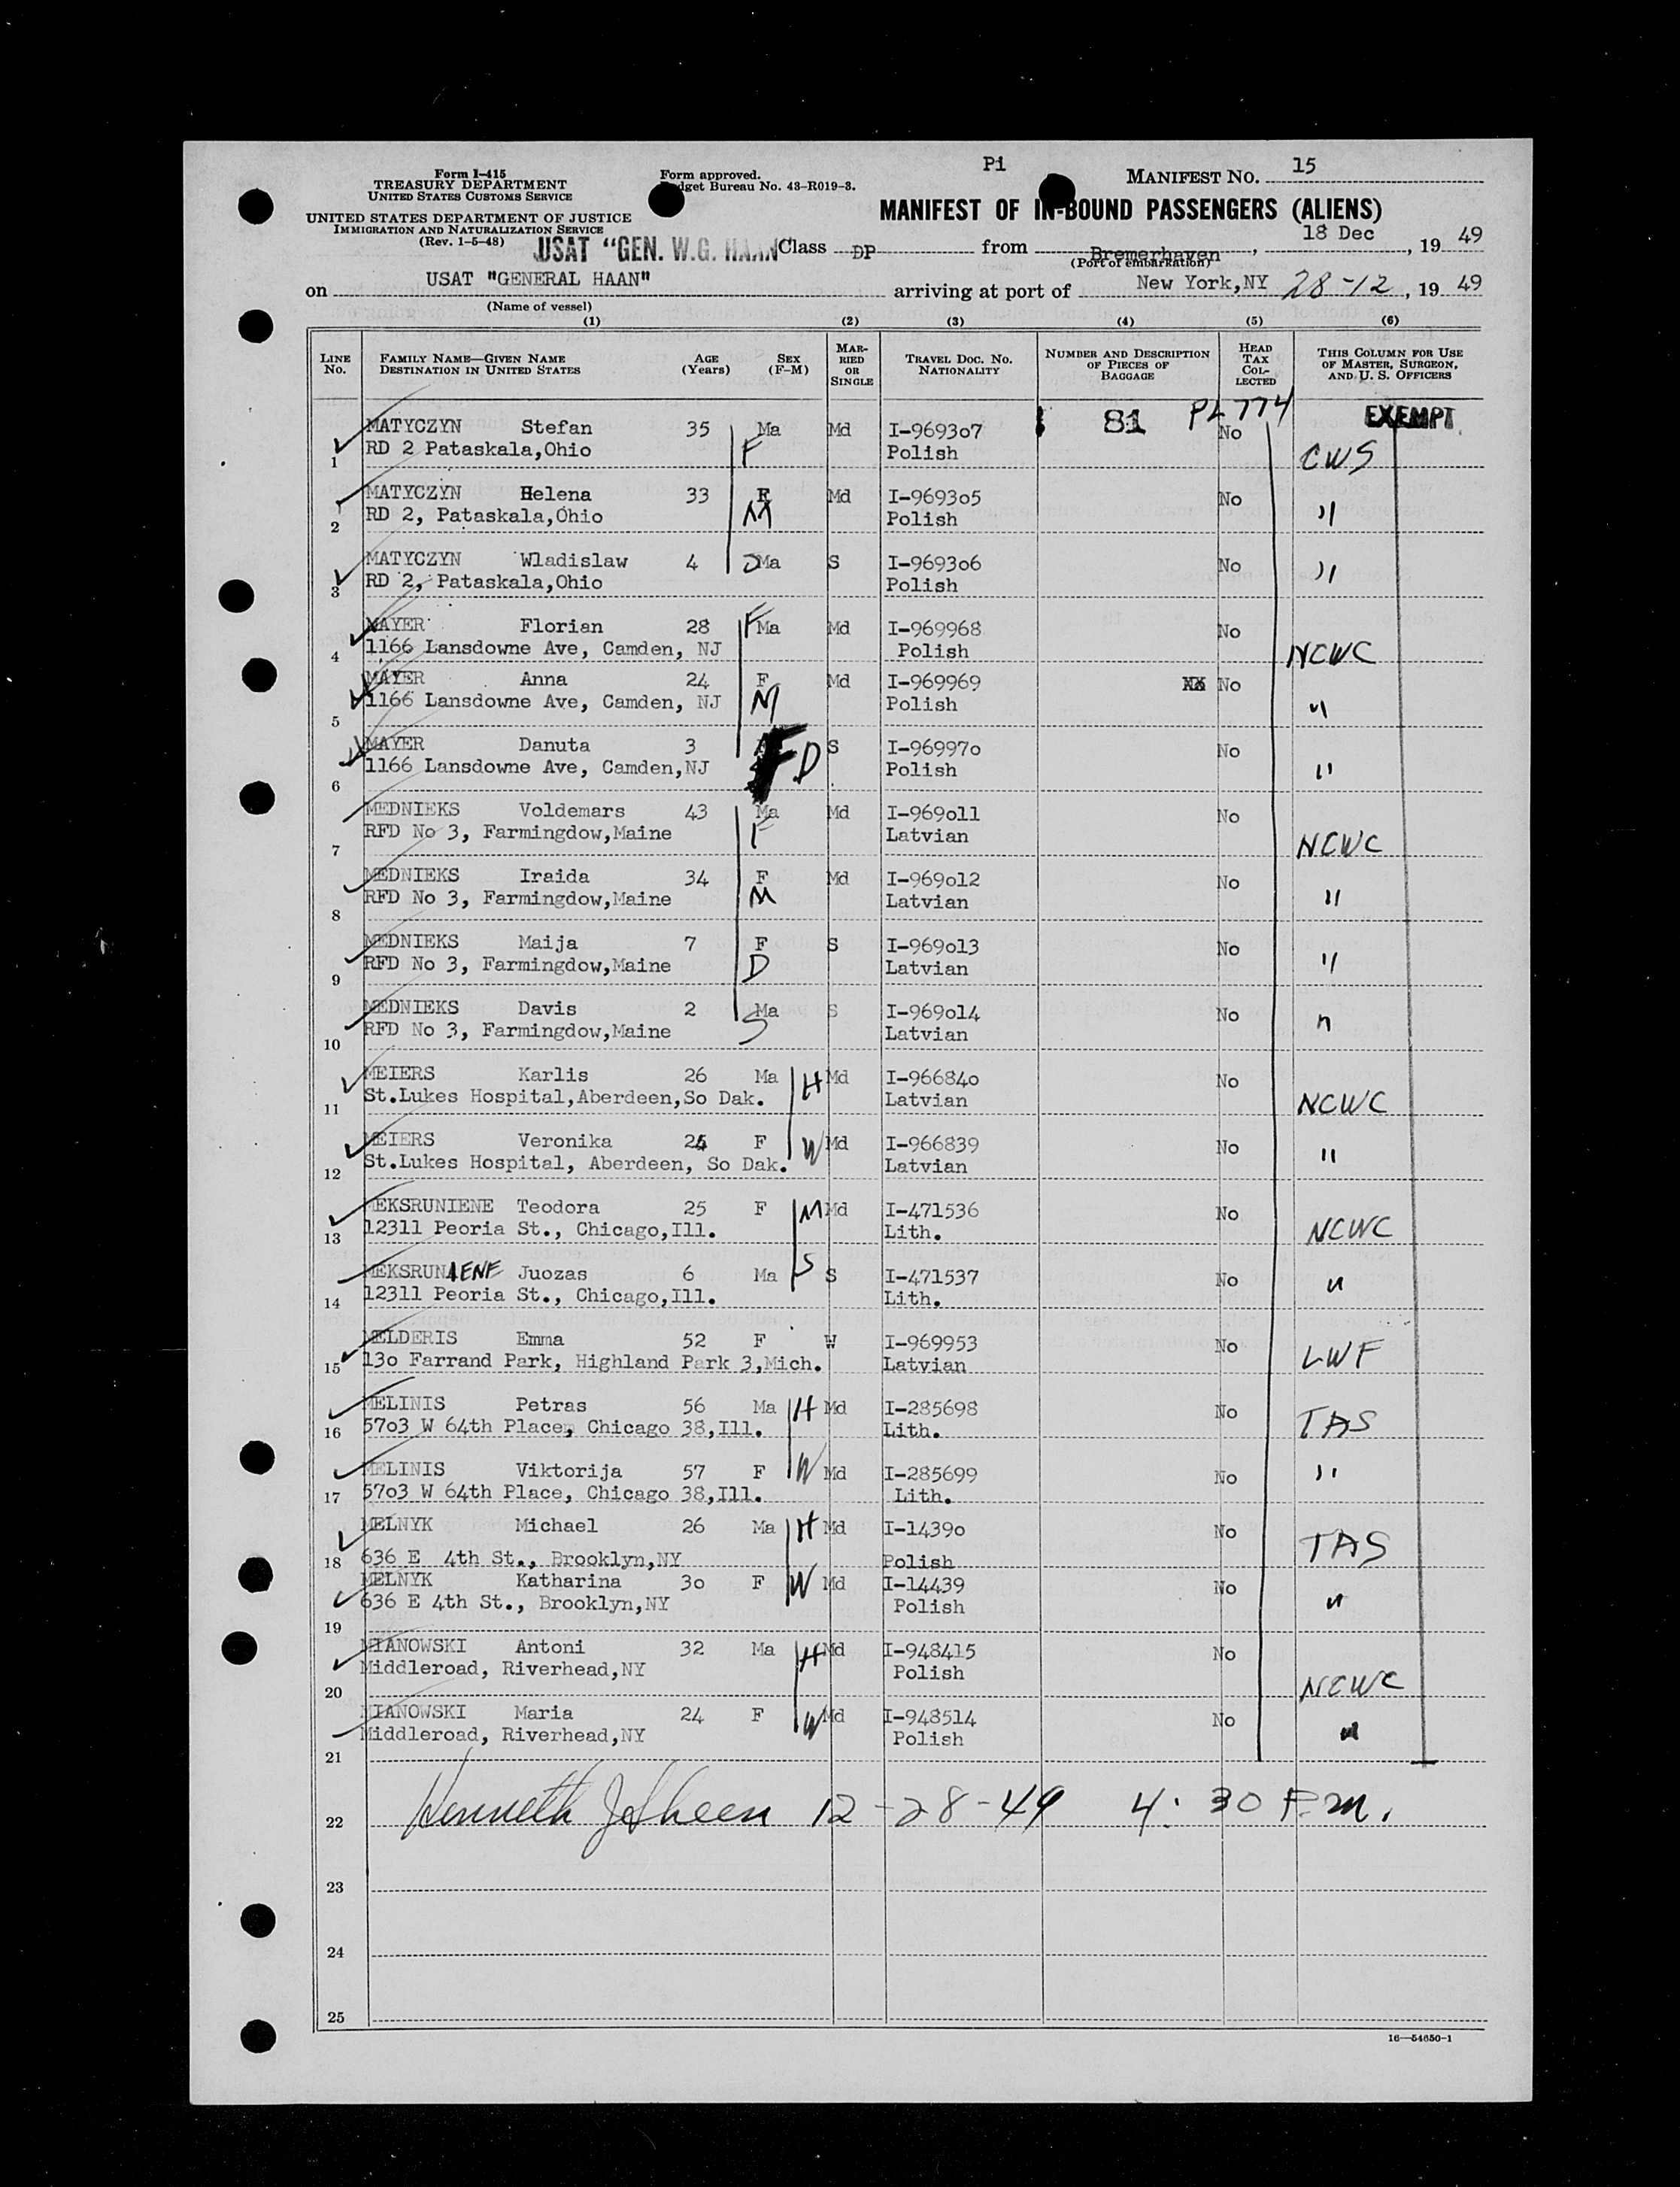 Pi
Form I-415
TREASURY DEPARTMENT
UNITED STATES CUSTOMS SERVICE
UNITED STATES DEPARTMENT OF JUSTICE
IMMIGRATION AND NATURALIZATION SERVICE
(Rev. 1-5-48)
Form approved.
Budget Bureau No. 43-R019-3.
MANIFEST NO. 15
MANIFEST OF IN-BOUND PASSENGERS (ALIENS)
USAT "GEN. W.G. HAAN Class DP from Bremerhaven, 18 Dec, 19 49
(Port of embarkation)
on USAT "GENERAL HAAN" arriving at port of New York,NY 28-12, 19 49
(Name of vessel)
(1) (2) (3) (4) (5) (6)
LINE No. FAMILY NAME—GIVEN NAME DESTINATION IN UNITED STATES AGE (Years) SEX (F-M) MARRIED OR SINGLE TRAVEL DOC. NO. NATIONALITY NUMBER AND DESCRIPTION OF PIECES OF BAGGAGE HEAD TAX COLLECTED THIS COLUMN FOR USE OF MASTER, SURGEON, AND U. S. OFFICERS
81 PL 774 EXEMPT
MATYCZYN Stefan 35 Ma Md I-9693o7 No
1 RD 2 Pataskala,Ohio F Polish CWS
MATYCZYN Helena 33 F Md I-9693o5 No
2 RD 2, Pataskala,Ohio M Polish "
MATYCZYN Wladislaw 4 Ma S I-9693o6 No
3 RD 2, Pataskala,Ohio Polish "
MAYER Florian 28 F Ma Md I-969968 No
4 1166 Lansdowne Ave, Camden, NJ Polish NCWC
MAYER Anna 24 F Md I-969969 XX No
5 1166 Lansdowne Ave, Camden, NJ M Polish "
MAYER Danuta 3 F D S I-96997o No
6 1166 Lansdowne Ave, Camden,NJ Polish "
MEDNIEKS Voldemars 43 Ma Md I-969o11 No
7 RFD No 3, Farmingdow,Maine F Latvian NCWC
MEDNIEKS Iraida 34 F Md I-969o12 No
8 RFD No 3, Farmingdow,Maine M Latvian "
MEDNIEKS Maija 7 F S I-969o13 No
9 RFD No 3, Farmingdow,Maine D Latvian "
MEDNIEKS Davis 2 Ma S I-969o14 No
10 RFD No 3, Farmingdow,Maine S Latvian "
MEIERS Karlis 26 Ma H Md I-96684o No
11 St.Lukes Hospital,Aberdeen,So Dak. Latvian NCWC
MEIERS Veronika F W Md I-966839 No
12 St.Lukes Hospital, Aberdeen, So Dak. Latvian "
MEKSRUNIENE Teodora 25 F M Md I-471536 No
13 12311 Peoria St., Chicago,Ill. Lith. NCWC
MEKSRUNIENE Juozas 6 Ma S S I-471537 No
14 12311 Peoria St., Chicago,Ill. Lith. "
MELDERIS Emma 52 F W I-969953 No
15 13o Farrand Park, Highland Park 3,Mich. Latvian LWF
MELINIS Petras 56 Ma H Md I-285698 No
16 57o3 W 64th Place, Chicago 38,Ill. Lith. TAS
MELINIS Viktorija 57 F W Md I-285699 No
17 57o3 W 64th Place, Chicago 38,Ill. Lith. "
MELNYK Michael 26 Ma H Md I-1439o No
18 636 E 4th St., Brooklyn,NY Polish TAS
MELNYK Katharina 3o F W Md I-14439 No
19 636 E 4th St., Brooklyn,NY Polish "
MIANOWSKI Antoni 32 Ma H Md I-948415 No
20 Middleroad, Riverhead,NY Polish NCWC
MIANOWSKI Maria 24 F W Md I-948514 No
21 Middleroad, Riverhead,NY Polish "
22 Kenneth 12-28-49 4:30 P.m.
23
24
25
16—54650-1